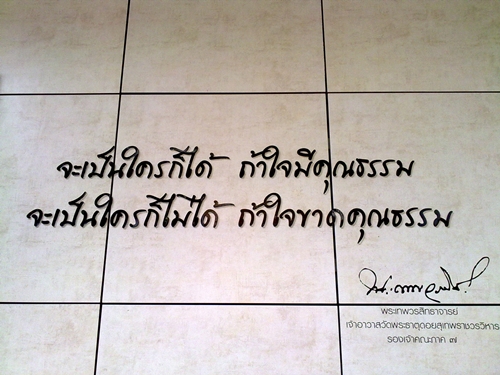 จะเป็นใครก็ได้ ถ้าใจมีคุณธรรม
จะเป็นใครก็ไม่ได้ ถ้าใจขาดคุณธรรม
พระเทพวรสิทธาจารย์
เจ้าอาวาสวัดพระธาตุดอยสุเทพราชวรวิหาร
รองเจ้าคณะภาค ๗